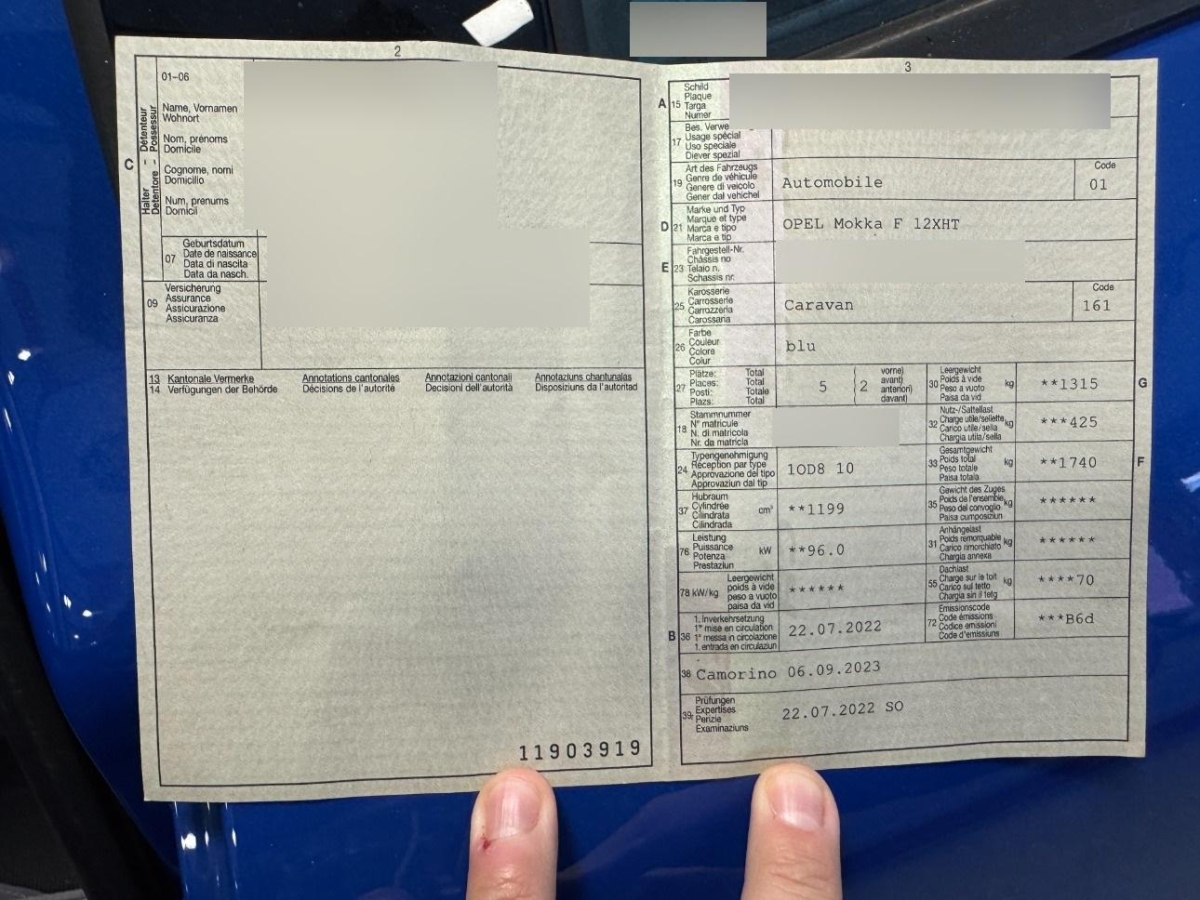 2
01-06
Halter - Détenteur
Detentore - Possessur
C
Name, Vornamen
Wohnort
Nom, prénoms
Domicile
Cognome, nomi
Domicilio
Num, prenums
Domicil
07
Geburtsdatum
Date de naissance
Data di nascita
Data da nasch.
09
Versicherung
Assurance
Assicurazione
Assicuranza
13 Kantonale Vermerke Annotations cantonales Annotazioni cantonali Annotaziuns chantunalas
14 Verfügungen der Behörde Décisions de l'autorité Decisioni dell'autorità Disposiziuns da l'autoritad
11903919
3
A 15
Schild
Plaque
Targa
Numer
17
Bes. Verwe
Usage spécial
Uso speciale
Diever spezial
19
Art des Fahrzeugs
Genre de véhicule
Genere di veicolo
Gener dal vehichel
Automobile
Code
01
D 21
Marke und Typ
Marque et type
Marca e tipo
Marca e tip
OPEL Mokka F 12XHT
E 23
Fahrgestell-Nr.
Châssis no
Telaio n.
Schassis nr.
25
Karosserie
Carrosserie
Carrozzeria
Carossaria
Caravan
Code
161
26
Farbe
Couleur
Colore
Colur
blu
27
Plätze: Total
Places: Total
Posti: Totale
Plazs: Total
5
(2
vorne)
avant)
anteriori)
davant)
30
Leergewicht
Poids à vide
Peso a vuoto
Paisa da vid
kg
**1315
G
18
Stammnummer
N° matricule
N. di matricola
Nr. da matricla
32
Nutz-/Sattellast
Charge utile/sellette
Carico utile/sella
Chargia utila/sella
kg
***425
24
Typengenehmigung
Réception par type
Approvazione del tipo
Approvaziun dal tip
1OD8 10
33
Gesamtgewicht
Poids total
Peso totale
Paisa totala
kg
**1740
F
37
Hubraum
Cylindrée
Cilindrata
Cilindrada
cm³
**1199
35
Gewicht des Zuges
Poids de l'ensemble
Peso del convoglio
Paisa cumposiziun
kg
******
76
Leistung
Puissance
Potenza
Prestaziun
kW
**96.0
31
Anhängelast
Poids remorquable
Carico rimorchiato
Chargia annexa
kg
******
78 kW/kg
Leergewicht
poids à vide
peso a vuoto
paisa da vid
******
55
Dachlast
Charge sur le toit
Carico sul tetto
Chargia sin il tetg
kg
****70
B 36
1. Inverkehrsetzung
1re mise en circulation
1a messa in circolazione
1. entrada en circulaziun
22.07.2022
72
Emissionscode
Code émissions
Codice emissioni
Code d'emissiuns
***B6d
38 Camorino 06.09.2023
39
Prüfungen
Expertises
Perizie
Examinaziuns
22.07.2022 SO